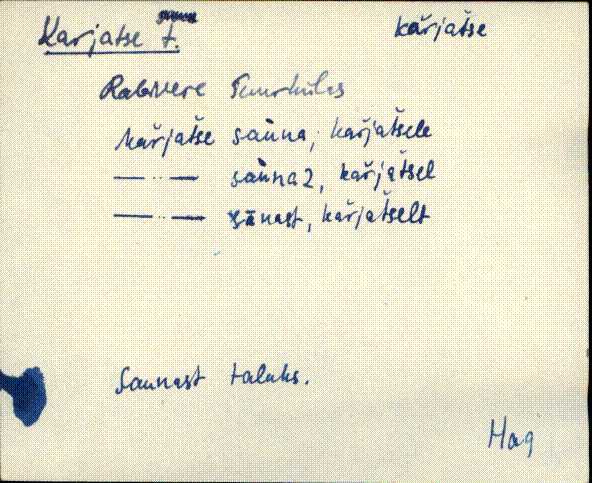 Karjatse t. kařjatše
Rabivere Suurkülas
kařjatse sau̬na, kařjatsele
—··— sau̬na2, kařjatsel
—··— sànast, kařjatselt
Saunast taluks.
Hag